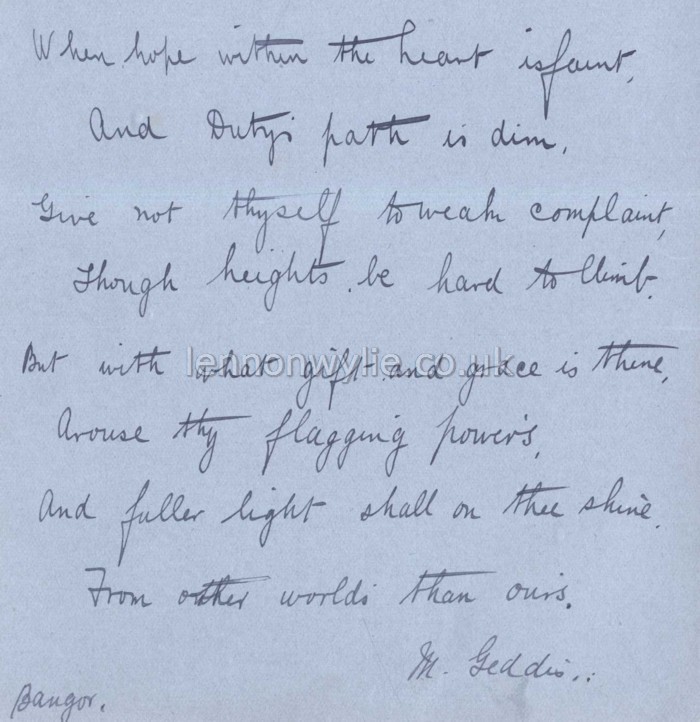 When hope within the heart is faint,
And Duty's path is dim,
Give not thyself to weak complaint,
Though heights be hard to climb.
lennonwylie.co.uk
But with what gift and grace is thine,
Arouse thy flagging powers,
And fuller light shall on thee shine
From other worlds than ours.
M. Geddis.
Bangor.